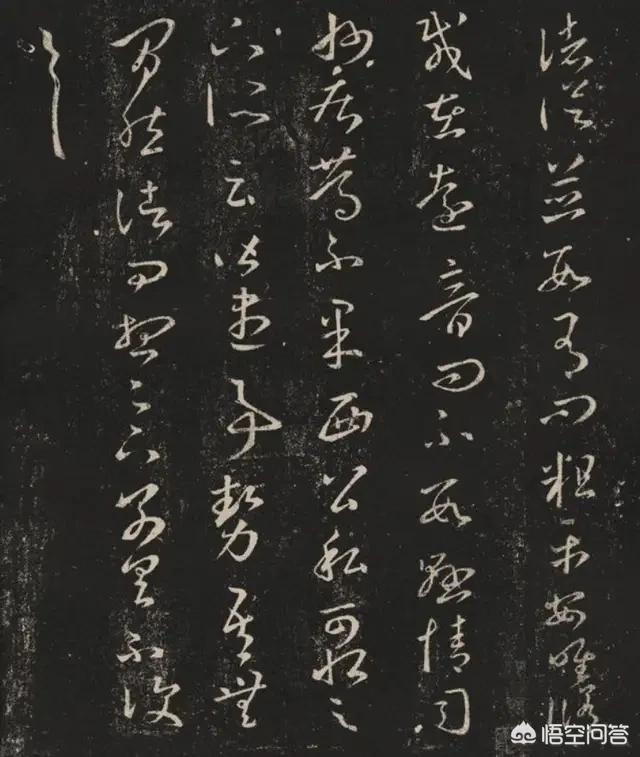 諸從並數有問粗平安唯脩
載在遠音問不數懸情司
州疾篤不果西公私可恨足
下所云皆盡事勢吾無
間然諸問想足下別具不復
一一
悟空问答